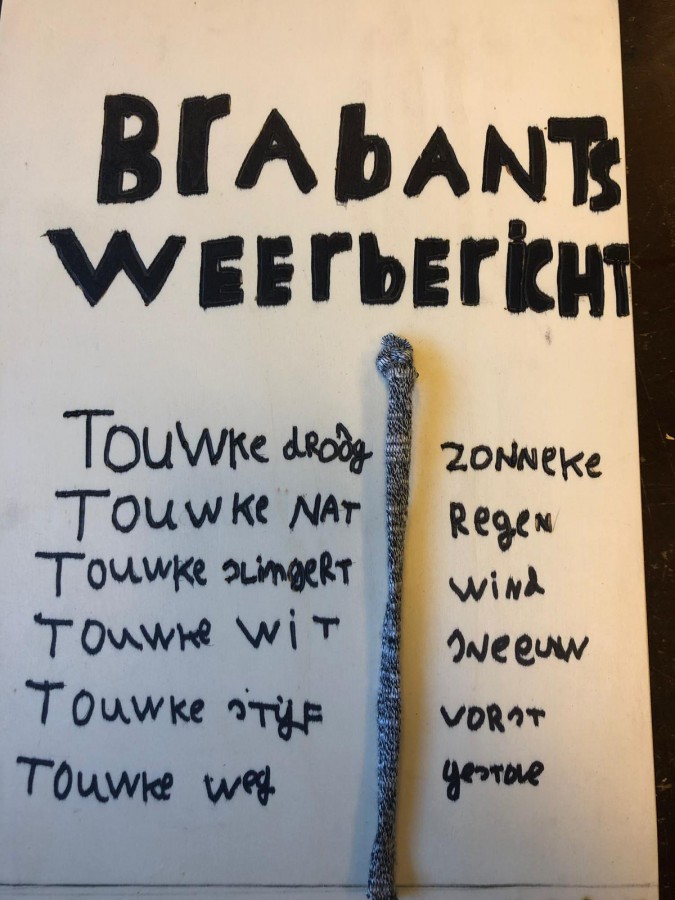 BrabANTs
WEErberICHT
TOUWKe dROÔg ZONNEKE
TOUWKe NAT RegeN
TOUWKe SLINGERT WINd
TOUWKe WIT SNeeuW
TOUWKe STIJF VORST
TOUWKe weg gestole